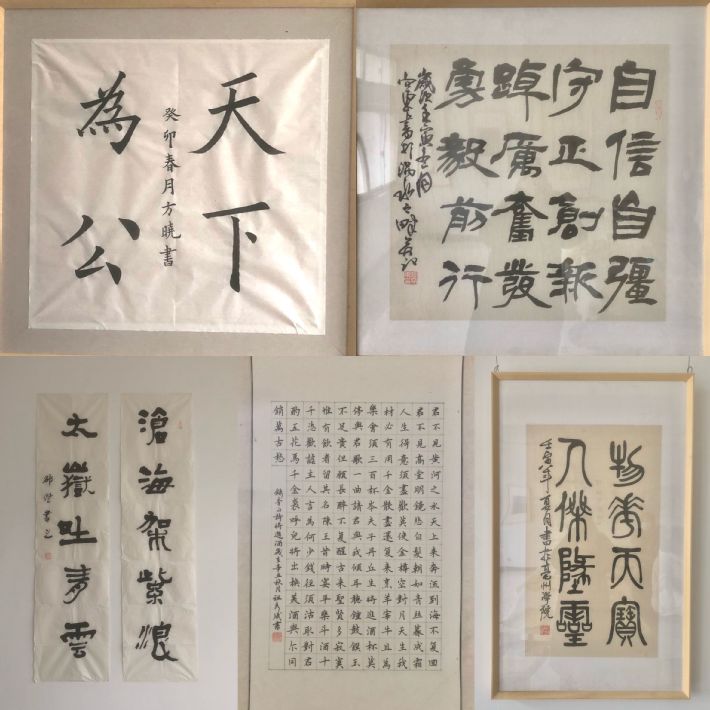 天下
為公
癸卯春月方曉書
自信自彊
守正創新
踔厲奮發
勇毅前行
歲次壬寅
滄海架紫浪
太嶽吐青雲
書之
君不見黃河之水天上來奔流到海不復回
君不見高堂明鏡悲白髮朝如青絲暮成霜
人生得意須盡歡莫使金樽空對月天生我
材必有用千金散盡還復來烹羊宰牛且為
樂會須三百杯岑夫子丹丘生將進酒杯莫
停與君歌一曲請君為我傾耳聽鐘鼓饌玉
不足貴但願長醉不復醒古來聖賢多寂寞
惟有飲者留其名陳王昔時宴平樂斗酒十
千恣歡謔主人言為何少錢徑須沽取對君
酌五花馬千金裘呼兒將出換美酒與尓同
銷萬古愁
錄李白詩將進酒歲在辛丑秋月
物華天寶
人傑墬靈
壬寅年夏月書於亳州學院